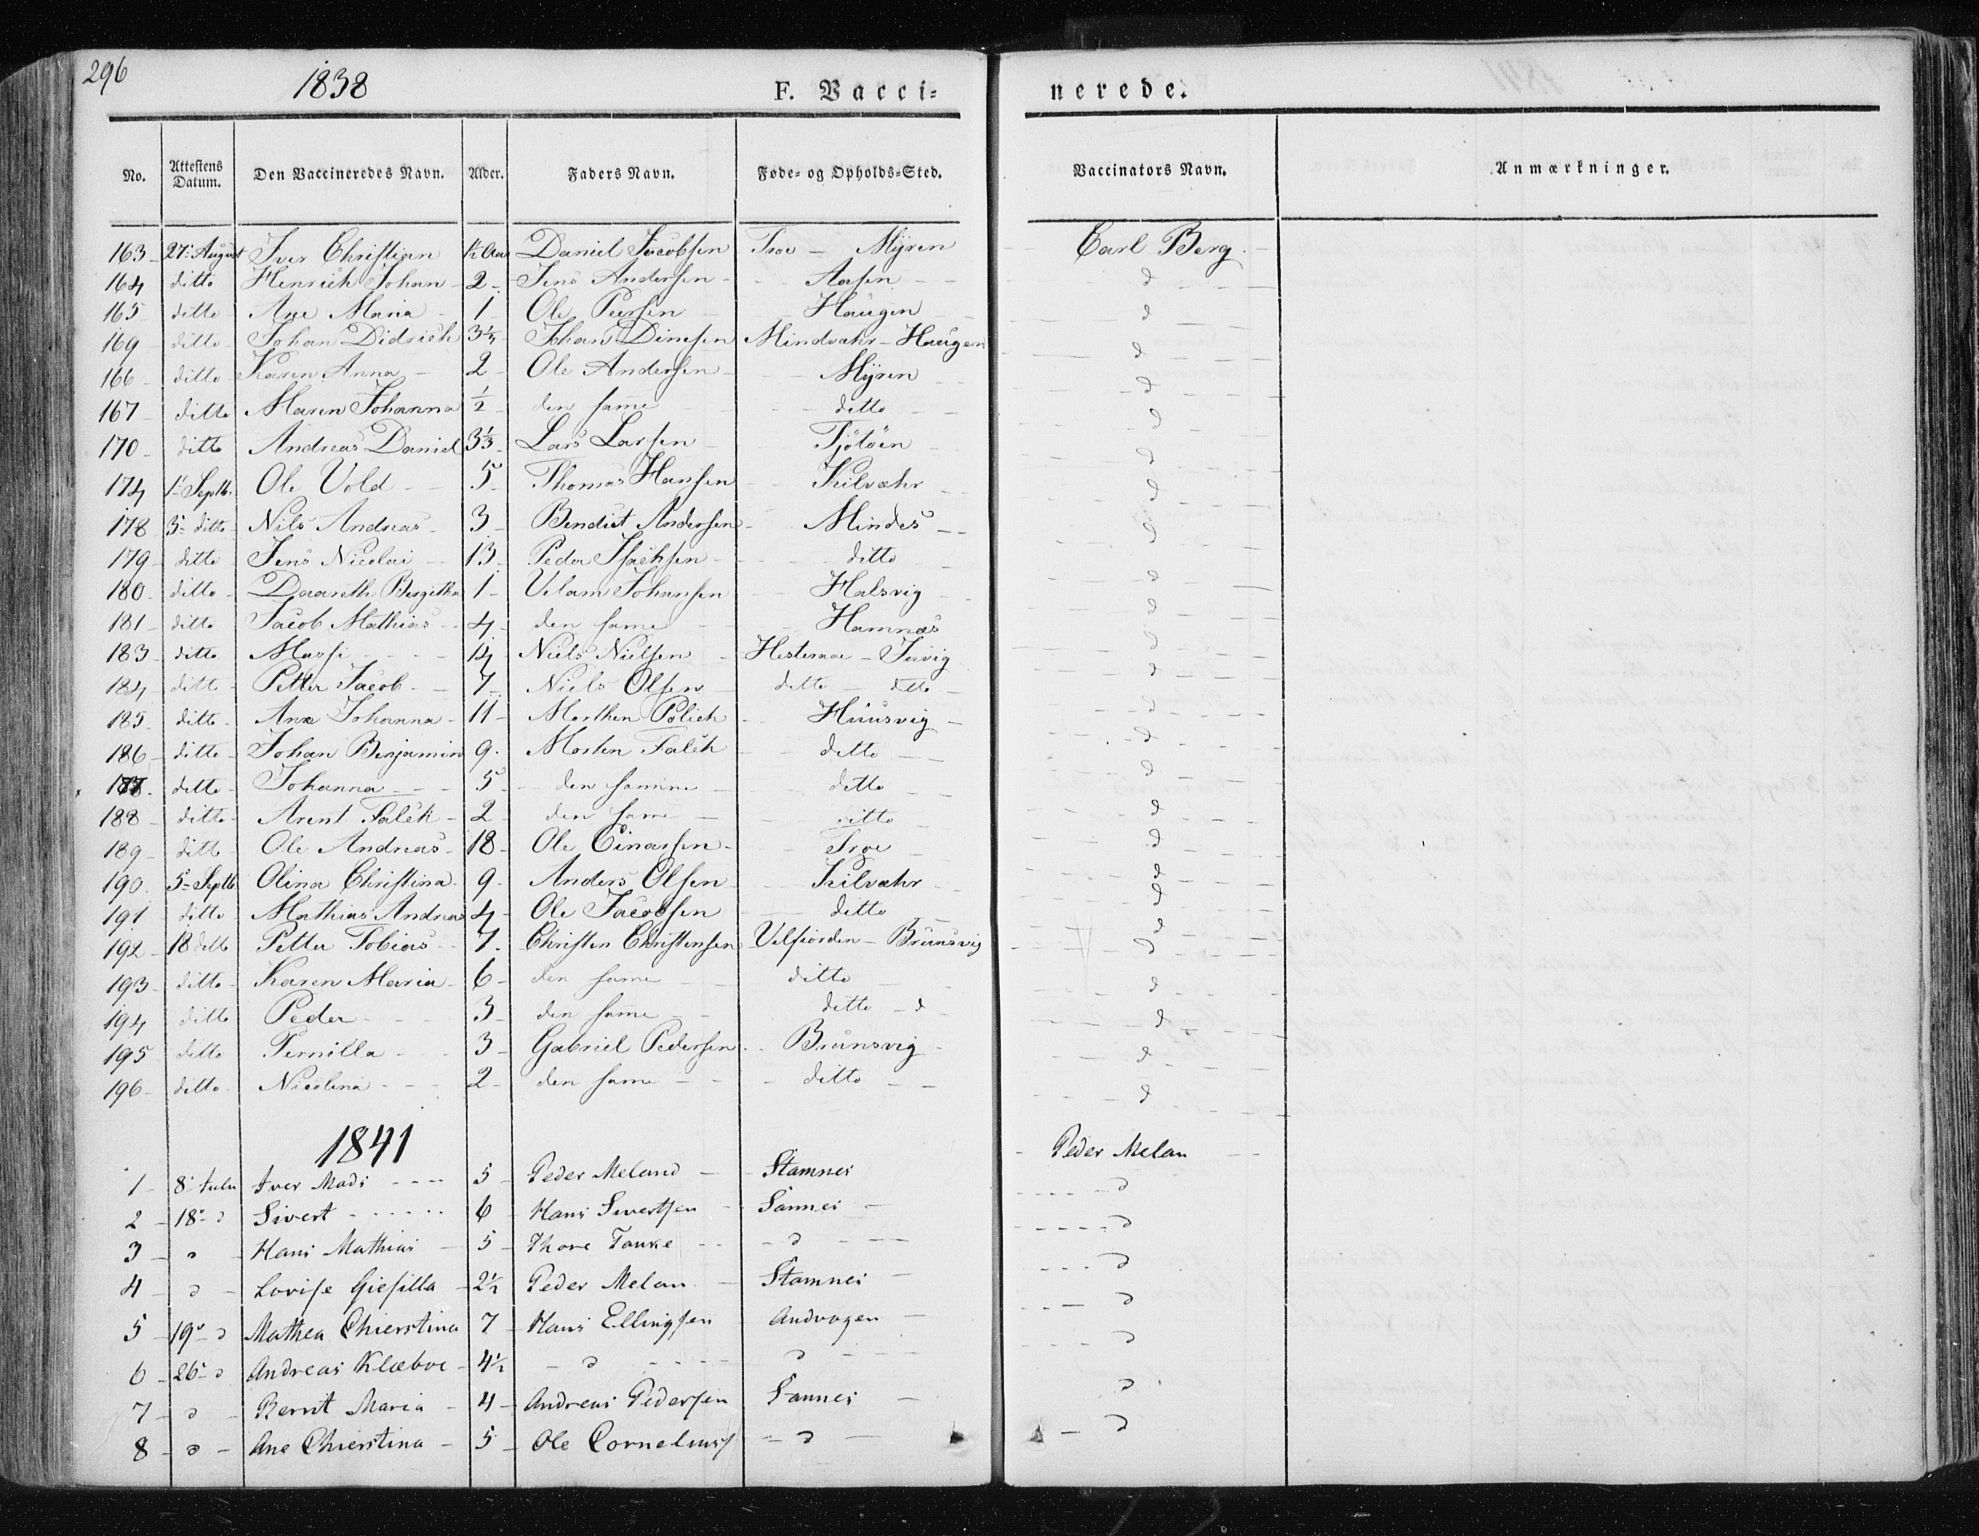 296
1838
F. Vacci-
nerede.
No. Attestens Datum. Den Vaccineredes Navn. Alder. Faders Navn. Føde- og Opholds-Sted. Vaccinators Navn. Anmærkninger.
163 27. August Iver Christian Daniel Jacobsen Troe - Myren Carl Berg
164 ditto Henrich Johan 2 Jens Andersen Aasen d
165 ditto Ane Maria 1 Ole Peersen Haugen d
169 ditto Johan Didrich 3½ Johans Dinesen Mindvahr - Haugen d
166 ditto Karen Anna 2 Ole Andersen Myren d
167 ditto Maren Johanna ½ den same ditto d
170 ditto Andreas Daniel 3⅓ Lars Larsen Tjötöen d
174 1. Septb. Ole Vold 5 Thomas Hansen Kilvahr d
178 3. ditto Nils Andreas 3 Bendict Andersen Mindes d
179 ditto Jens Nicolai 13 Peder Isachsen ditto d
180 ditto Daareth Bergitha 1 Velam Johansen Halsvig d
181 ditto Jacob Mathias 4 den same Hamnæs d
183 ditto Massi 14 Niels Nielsen Hestemoe - d
184 ditto Petter Jacob 7 Niels Olsen ditto - ditto d
185 ditto Ane Johanna 11 Morthen Huusvig d
186 ditto Johan Benjamin 9 Morten Falch ditto d
187 ditto Johanna 5 den samme ditto d
188 ditto Arent Falck 2 den same ditto d
189 ditto Ole Andreas 18 Ole Einarsen Troe d
190 5 Septb Olina Christina 9 Anders Olsen Kilvahr d
191 ditto Mathias Andreas 4 Ole Jacobsen ditto d
192 18 ditto Petter Tobias 7 Christen Christensen Velfiorden - Brunsvig d
193 ditto Karen Maria 6 den same ditto d
194 ditto Peder 3 den same ditto - d d
195 ditto Pernilla 3 Gabriel Pedersen Brunsvig d
196 ditto Nicolina 2 den same ditto d
1841
1 8. Iver Mads 5 Peder Meland Stamnes Peder Melan
2 18. d Sivert 6 Hans Sivertsen Sannes d
3 d Hans Mathias 5 Thore Tanke d d
4 d Lovise Giesilla 2½ Peder Melan Stamnes d
5 19. d Mathea Chierstina 7 Hans Ellingsen Andvagen d
6 26. d Andreas Klæboe 4½ d d d
7 d Berrit Maria 4 Andreas Pedersen Sannes d
8 d Ane Chierstina 5 Ole Cornelius d d